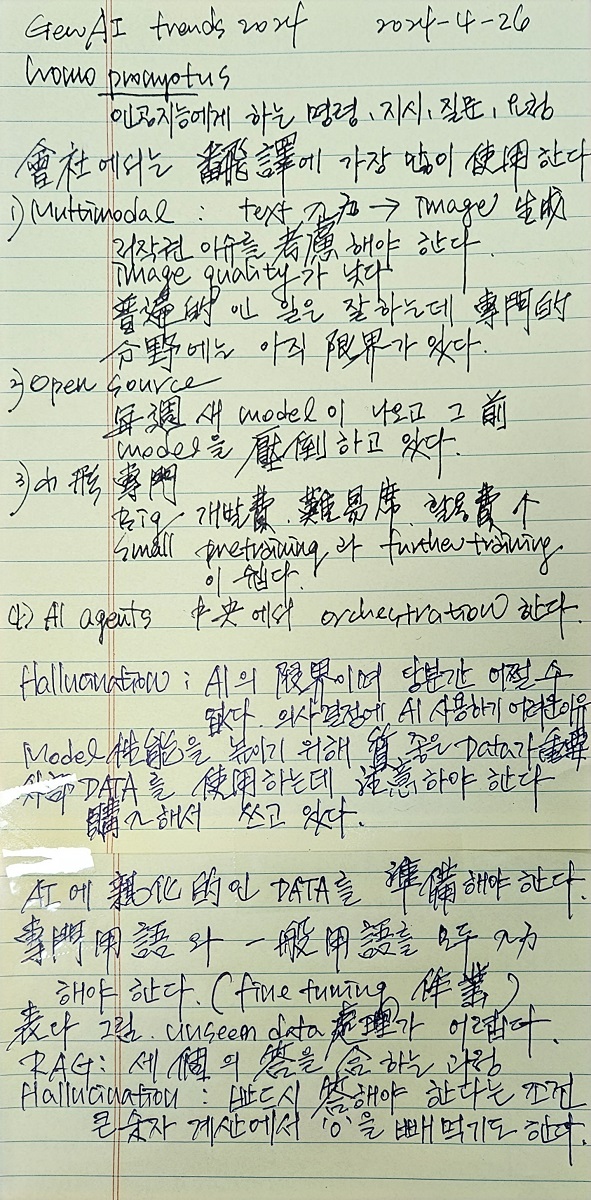 GenAI trends 2024 2024-4-26
homo promptus
인공지능에게 하는 명령, 지시, 질문, 요청
會社에서는 飜譯에 가장 많이 使用한다
1) Multimodal : text 入力 → image 生成
저작권 이슈를 考慮해야 한다.
image quality가 낮다
普遍的인 일은 잘하는데 專門的
分野에는 아직 限界가 있다.
2) Open source
每週 새 model이 나오고 그 前
model을 壓倒하고 있다.
3) 小形 專門
Big 개발費, 難易度, 활용費 ↑
small pretraining과 further training
이 쉽다.
4) AI agents 中央에서 orchestration 한다.
Hallucination : AI의 限界이며 당분간 어쩔 수
없다. 의사결정에 AI 사용하기 어려운 이유
Model 性能을 높이기 위해 質 좋은 Data가 重要
外部 DATA를 使用하는데 注意하야 한다
購入해서 쓰고 있다.
AI에 親化的인 DATA를 準備해야 한다.
專門用語와 一般用語를 모두 入力
해야 한다. (fine tuning 作業)
表나 그림. unseen data 處理가 어렵다.
RAG: 세 個의 答을 合하는 과정
Hallucination : 반드시 答해야 한다는 조건
큰 숫자 계산에서 '0'을 빼먹기도 한다.